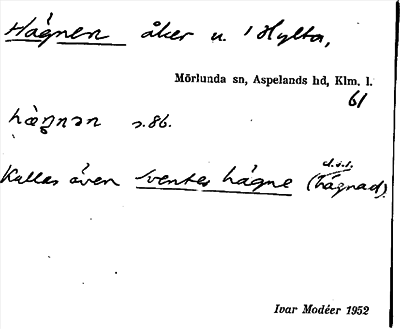 Hägnen åker u. 1 Hylta,
Mörlunda sn, Aspelands hd, Klm. l.
61
s. 86.
d.s.s.
Kallas även Sventes hägne (hägnad).
Ivar Modéer 1952